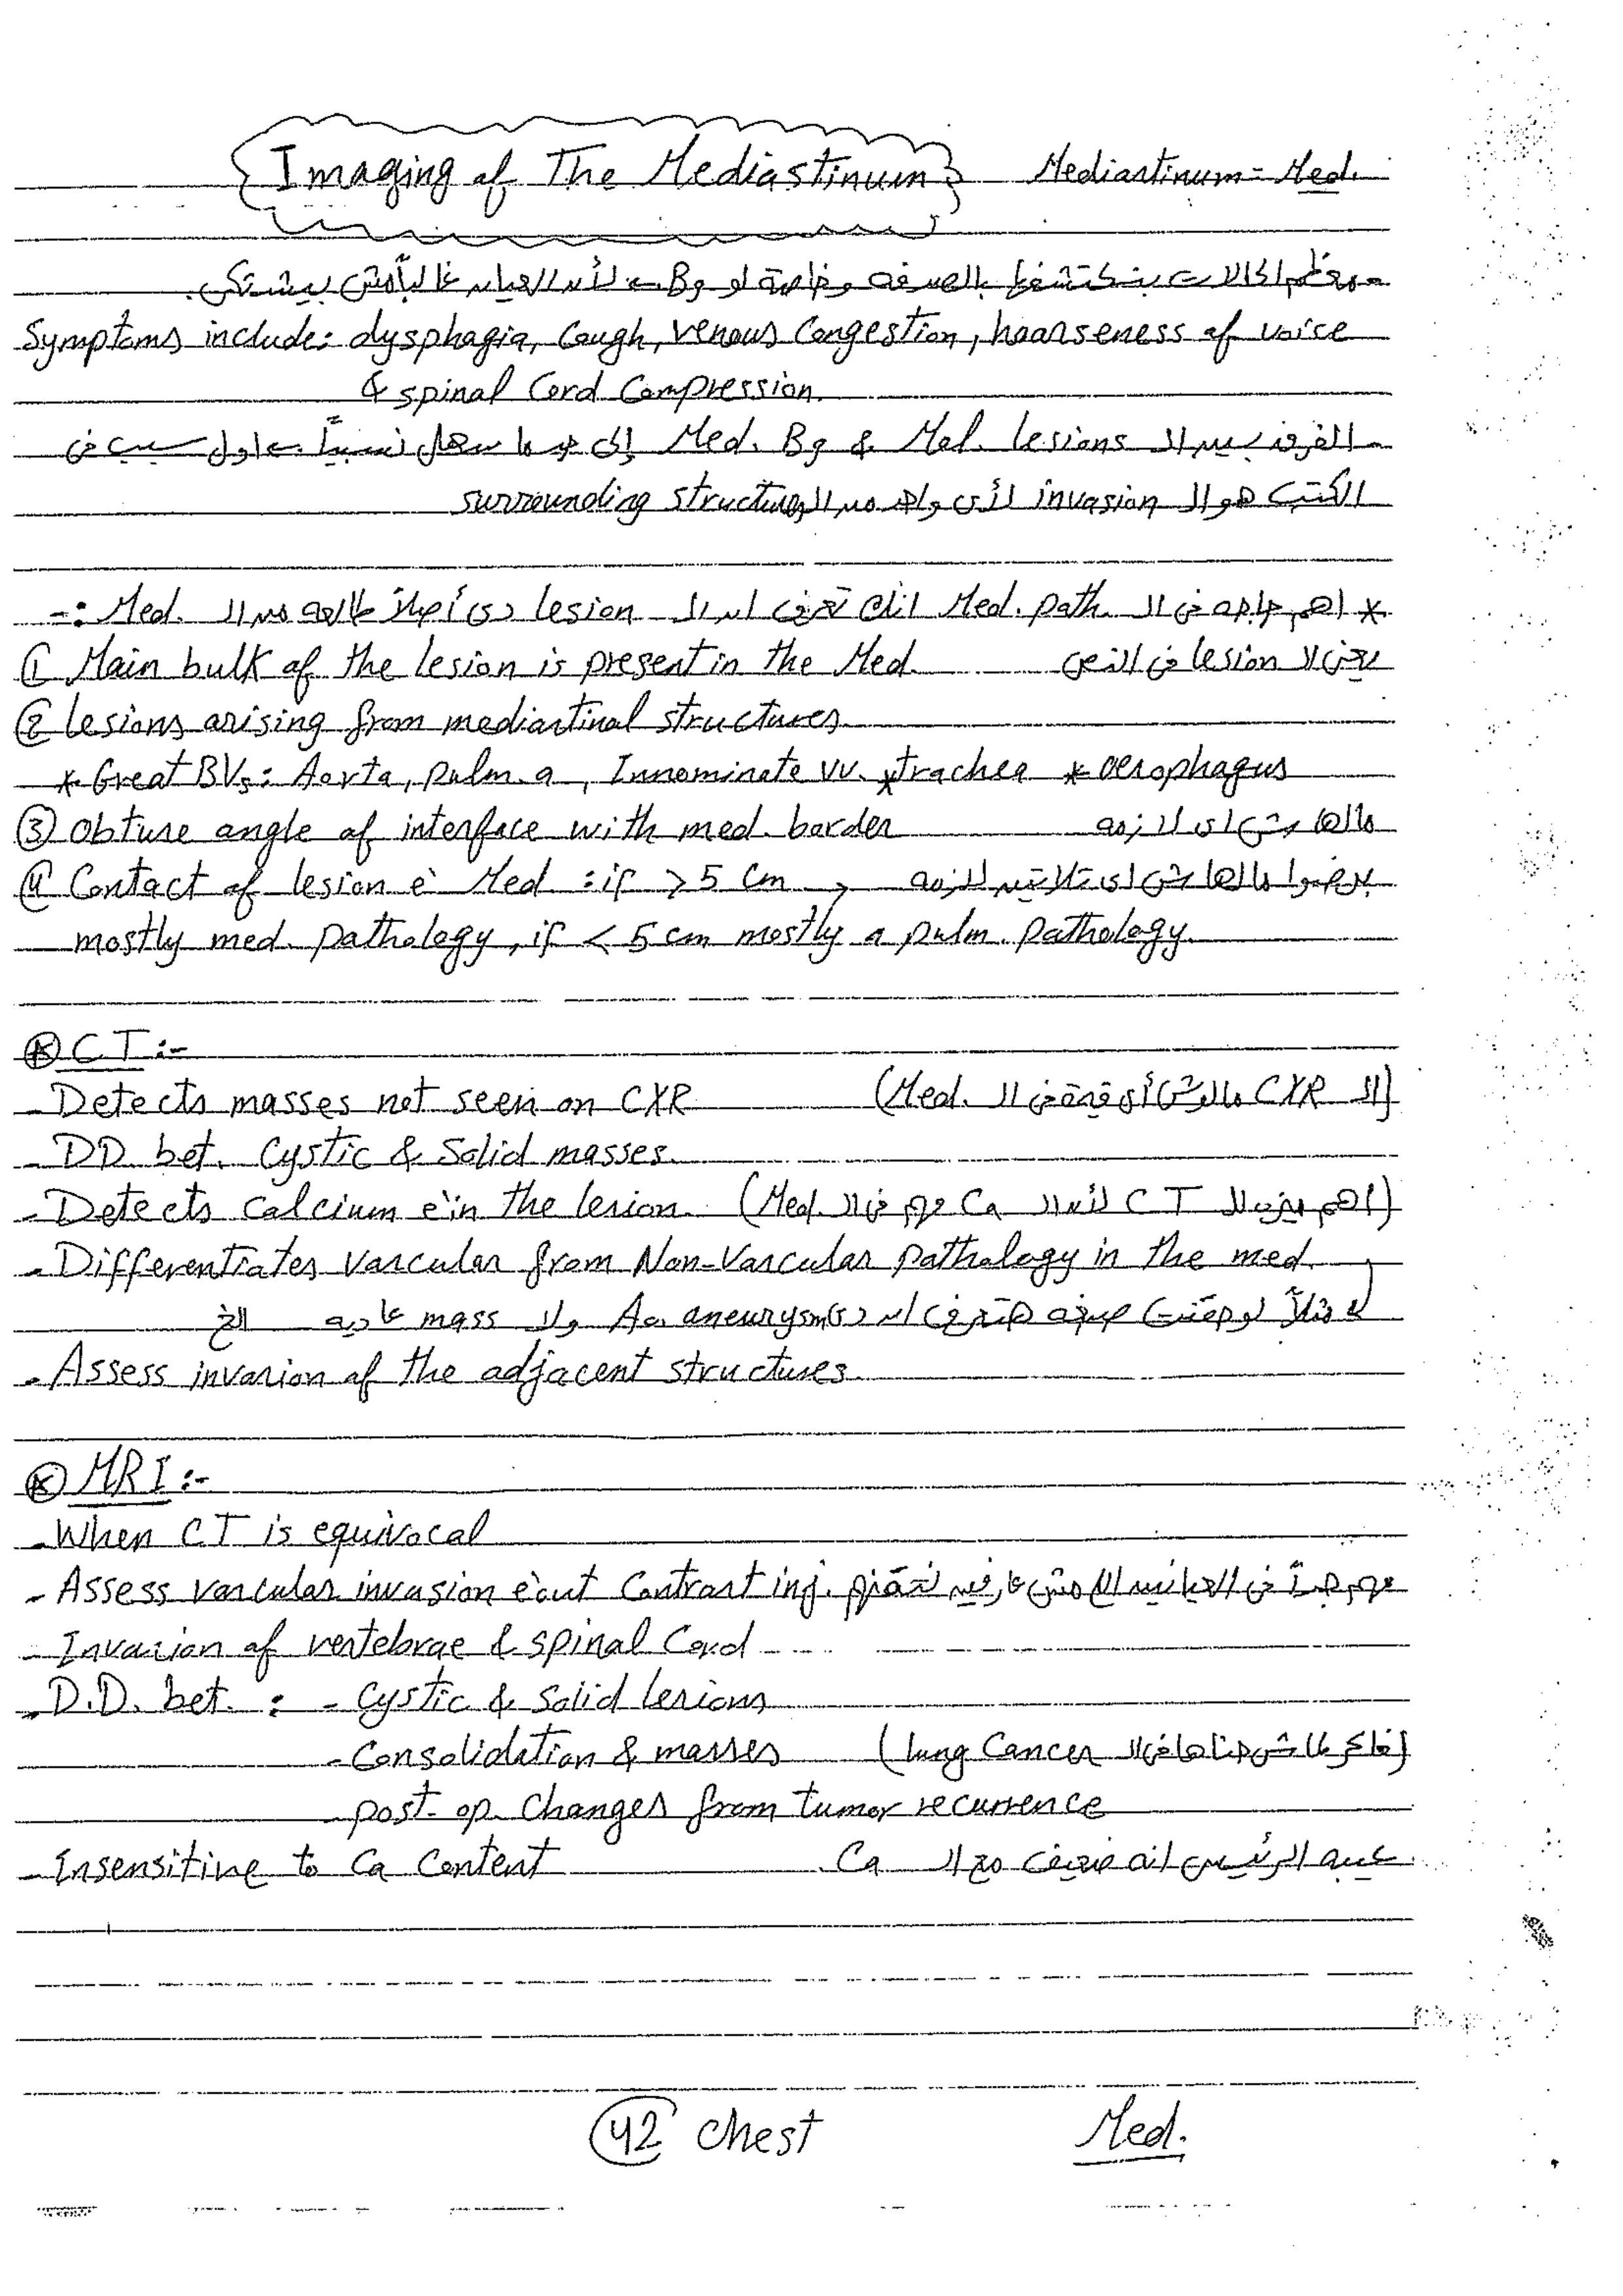 Imaging of The Mediastinum Mediastinum = Med.
- معظم الحالات بنكتشفها بالصدفه وخاصة لو Bg لأن العيان غالباً مش بيشتكى.
Symptoms include: dysphagia, Cough, venous Congestion, hoarseness of voice
& spinal Cord Compression.
- الفرق بين الـ Med. Bg & Mal. lesions إلى حد ما سهل نسبياً اول سبب فى
الكتب هو الـ invasion لأى واحد من الـ surrounding structures
* اهم حاجه فى الـ Med. path. انك تعرف ان الـ lesion دى أصلاً طالعه من الـ Med. :-
① Main bulk of the lesion is present in the Med. يعنى الـ lesion فى النص
② lesions arising from mediastinal structures
* Great BVs: Aorta, pulm. a, Innominate vv. * trachea * oesophagus
③ Obtuse angle of interface with med. border مالهاش اى لازمه
④ Contact of lesion è Med : if > 5 cm , برضوا مالهاش اى تلاتين لازمه
mostly med. pathology, if < 5 cm mostly a pulm. pathology.
* CT :-
- Detects masses not seen on CXR (الـ CXR مالوش أى قيمة فى الـ Med.)
- DD bet. Cystic & Solid masses.
- Detects Calcium è in the lesion. (أهم ميزه للـ CT لأن الـ Ca مهم فى الـ Med.)
- Differentiates Vascular from Non-Vascular pathology in the med.
مثلاً لو صبغه هتعرف ان دى Ao. aneurysm ولا mass عاديه الخ
- Assess invasion of the adjacent structures.
* MRI :-
- When CT is equivocal
- Assess vascular invasion èout Contrast inj. مهم جداً فى العيانين اللى مش عارفين
- Invasion of vertebrae & spinal Cord
- D.D. bet. : - Cystic & Solid lesions
- Consolidation & masses (فاكر ماشرحناها فى الـ lung Cancer)
post-op. Changes from tumor recurrence
- Insensitive to Ca Content عيبه الرئيسى انه ضعيف مع الـ Ca
42 Chest Med.